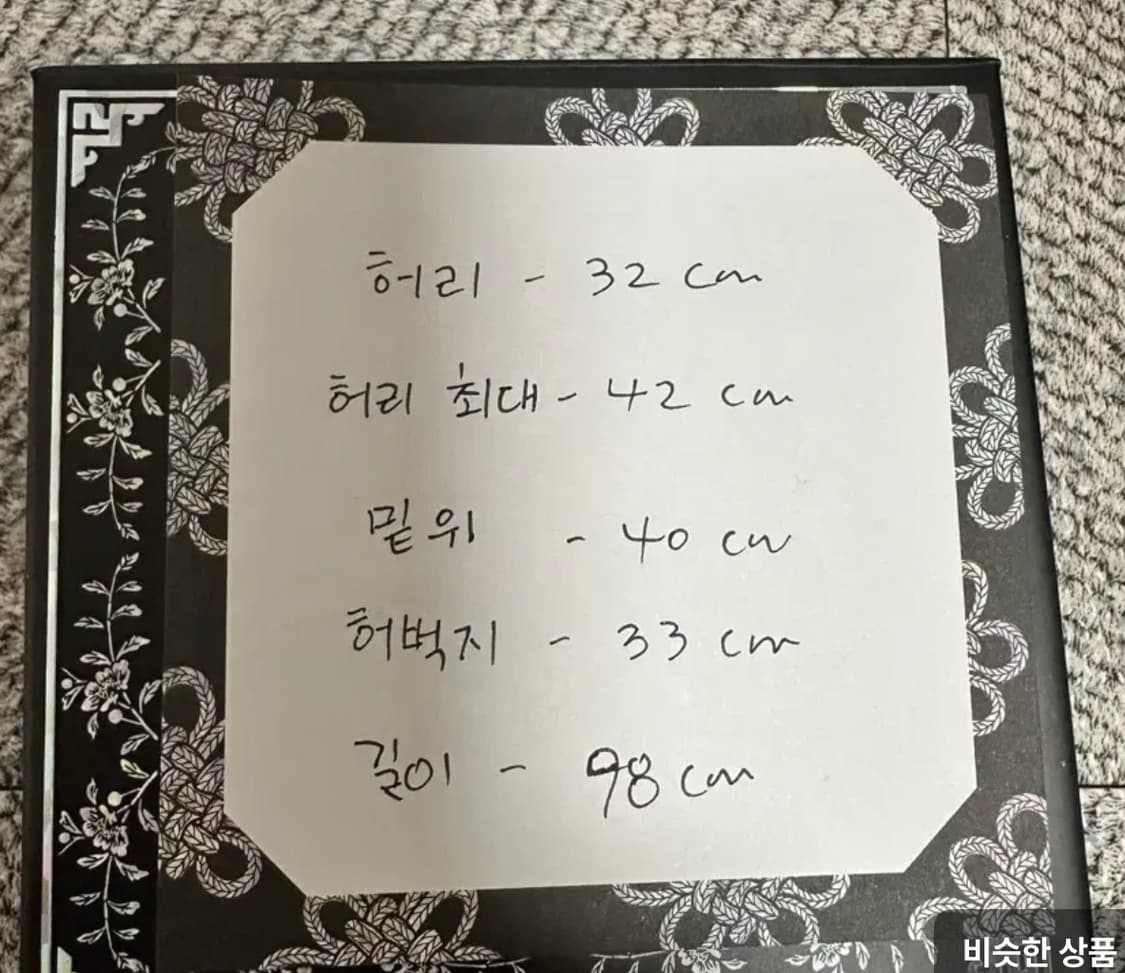 허리 - 32 cm
허리 최대 - 42 cm
밑위 - 40 cm
허벅지 - 33 cm
길이 - 98 cm
비슷한 상품